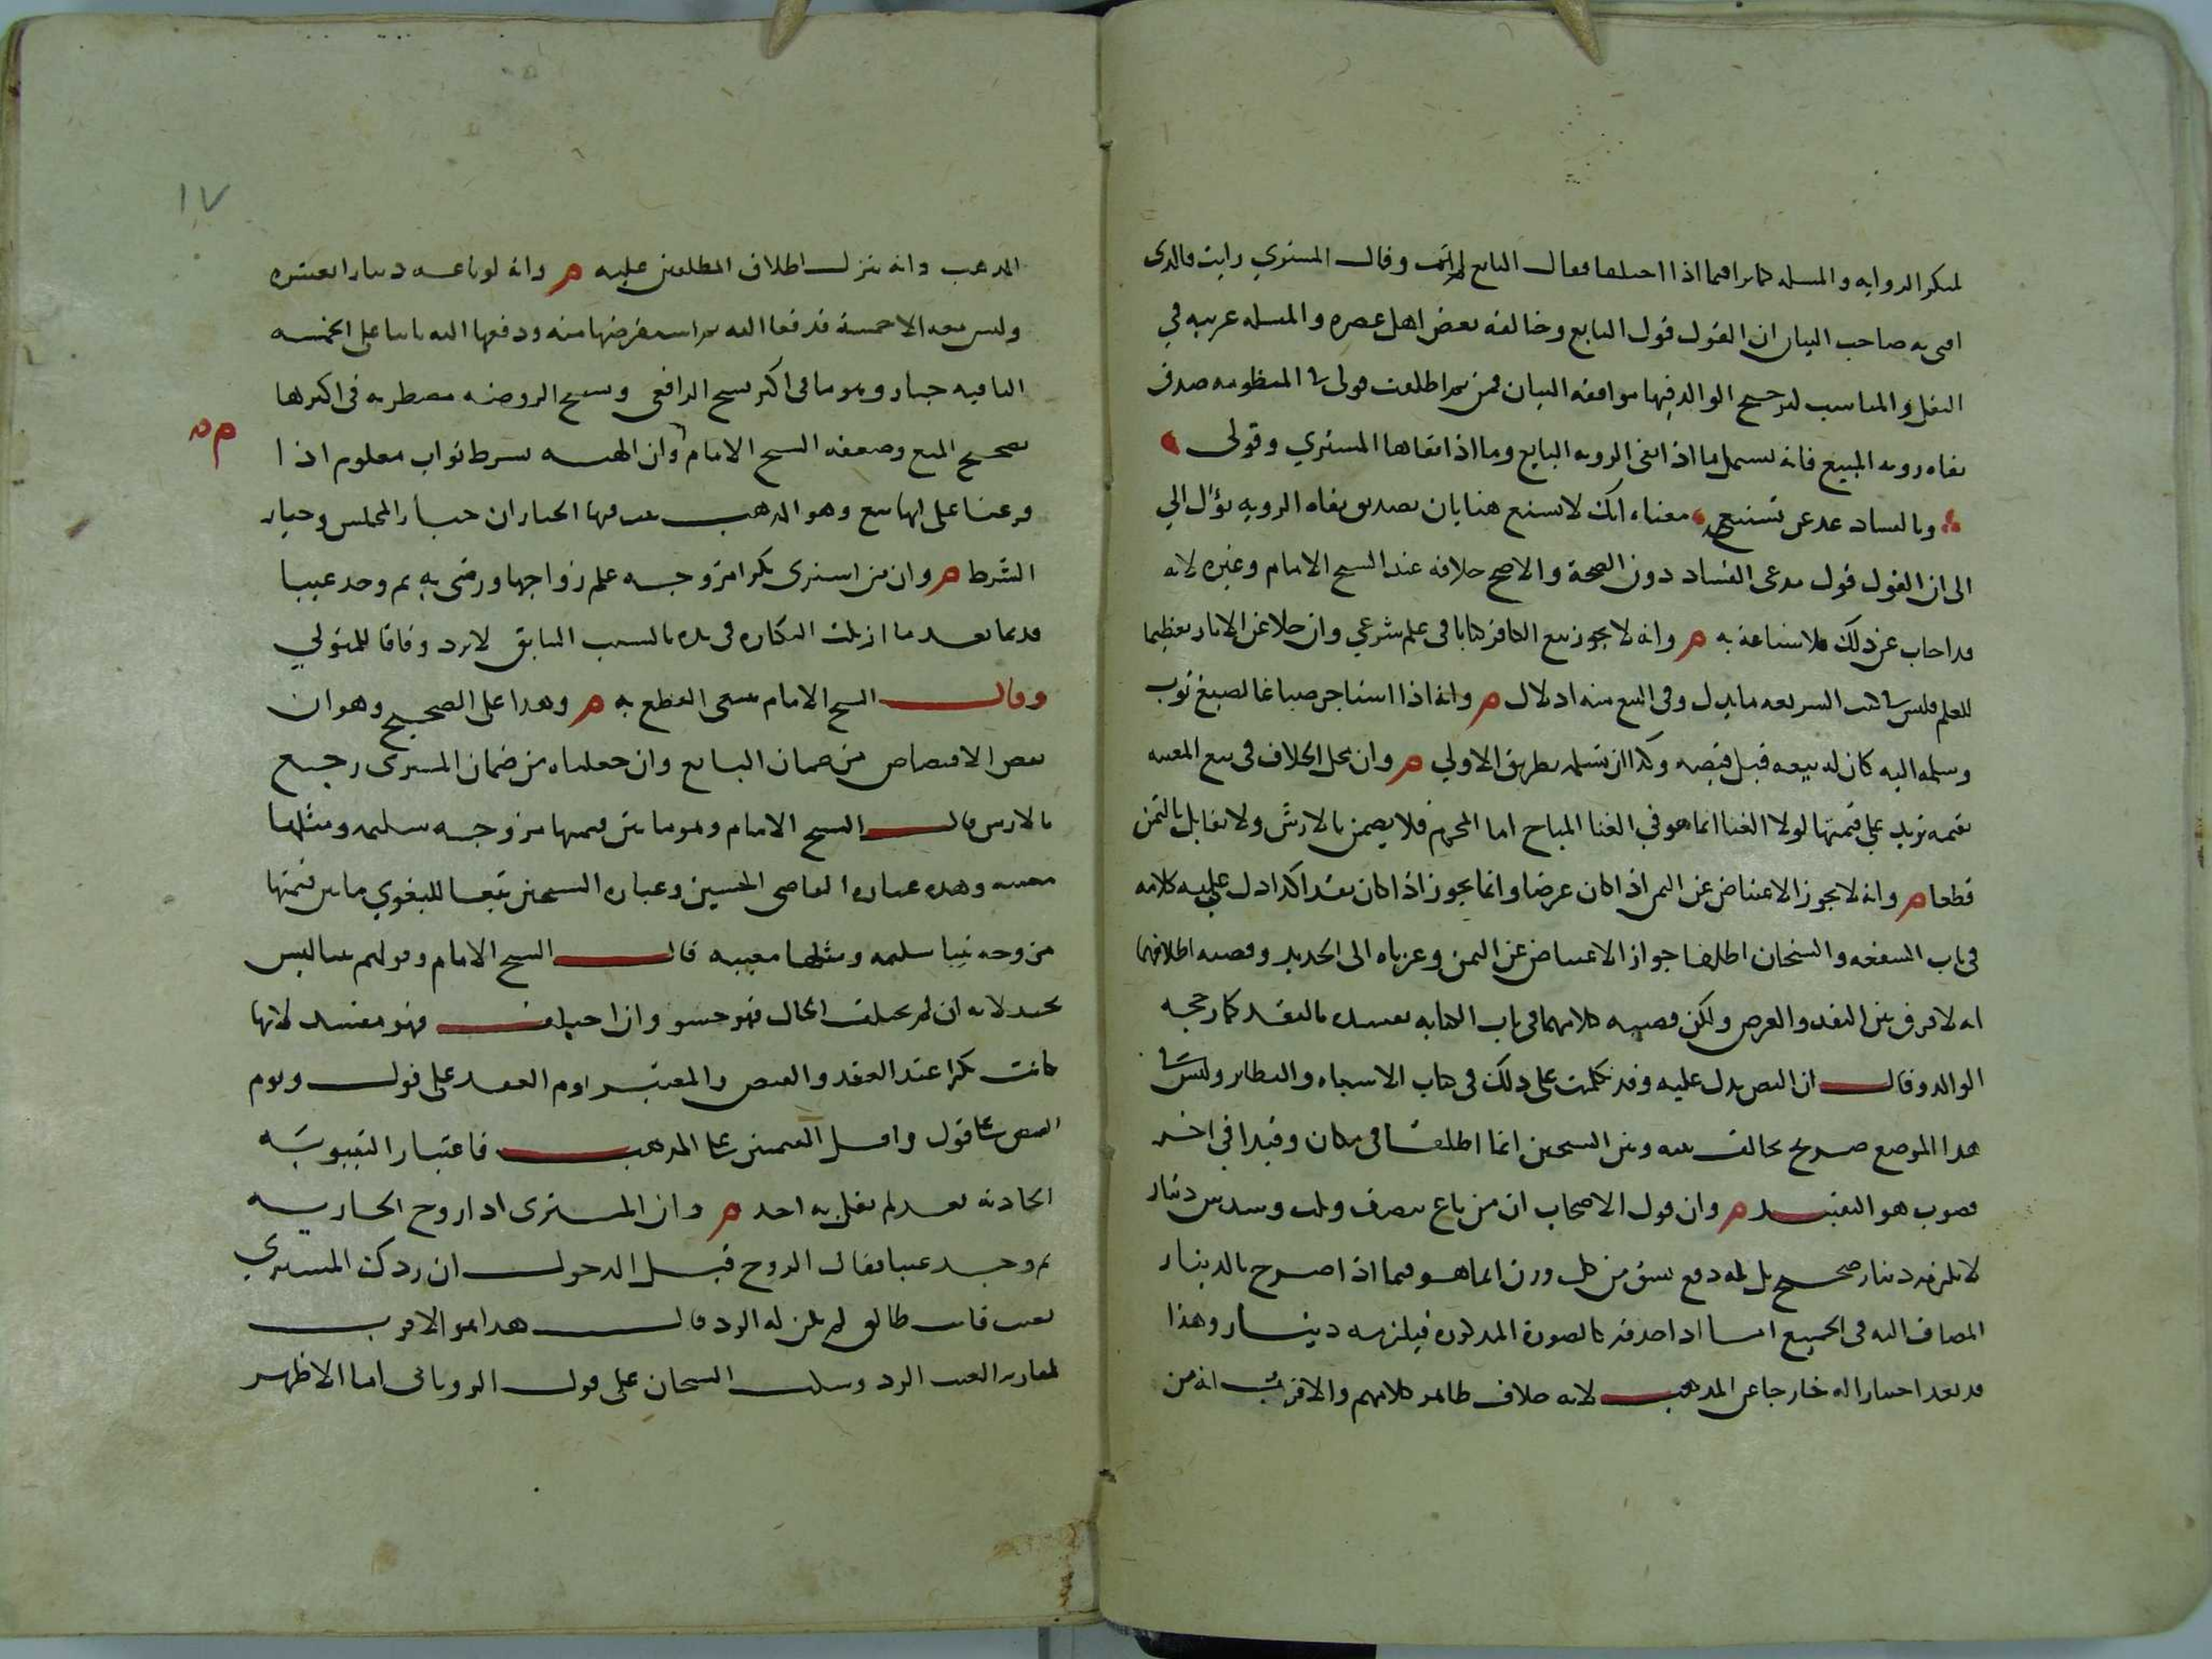 لمنكر الروايه والمسله كما تراها فيما اذا اختلفا فقال البايع لم اتب وقال المشتري رايت فالذي
افتى به صاحب البيان ان القول قول البايع وخالفه بعض اهل عصره والمسله غريبه في
النقل والمناسب لترجيح الوالد فيها موافقه البيان فمن ثم اطلقت قولى في المنظومه صدق
نفاه رويه المبيع فانه يشمل ما اذا نفى الرويه البايع وما اذا نفاها المشتري وقولى
وبالفساد عد عن تشنيع معناه انك لا تشنع هنا بان تصديق نفاه الرويه يؤل الي
الى ان القول قول مدعى الفساد دون الصحة والاصح خلافه عند الشيخ الامام وغيره لانه
قد اجاب عن ذلك فلا شناعة به م وانه لا يجوز بيع الكافر كتابا فى علم شرعي وان خلا عن الاثار تعظيما
للعلم فليس في كتب الشريعه ما يذل وفى البيع منه اذلال م وانه اذا استاجر صباغا لصبغ ثوب
وسلمه اليه كان له بيعه قبل قبضه وكذا ان تسلمه بطريق الاولي م وان محل الخلاف فى بيع المغنيه
بقيمه تزيد على قيمتها لولا الغنا انما هو في الغنا المباح اما المحرم فلا يضمن بالارش ولا تقابل بالثمن
قطعا م وانه لا يجوز الاعتياض عن الثمن اذا كان عرضا وانما يجوز اذا كان نقدا كذا دل عليه كلامه
فى باب الشفعه والشيخان اطلقا جواز الاعتياض عن الثمن وعزياه الى الجديد وقضيه اطلاقهما
انه لا فرق بين النقد والعرض ولكن قضيه كلامهما فى باب الكتابه تقييده بالنقد كما رجحه
الوالد وقال ان النص يدل عليه وقد تكلمت على ذلك فى كتاب الاشباه والنظاير وليس في
هذا الموضع صريح مخالف بينه وبين الشيخين انما اطلقا فى مكان وقيدا في اخر
فصوب هو التقييد م وان قول الاصحاب ان من باع بنصف وثلث وسدس دينار
لا يلزمه دينار صحيح بل له دفع شق من كل وزن انما هو فيما اذا صرح بالدينار
المضاف اليه فى الجميع اما اذا حذفه كالصورة المذكوره فيلزمه دينار وهذا
قد يعد اختيارا له خارجا عن المذهب لانه خلاف ظاهر كلامهم والاقرب انه من
١٧
المذهب وانه ينزل اطلاق المطلقين عليه م وانه لو باعه دينارا بعشره
وليس معه الا خمسة فدفعها اليه ثم استقرضها منه ودفعها اليه ثانيا على الخمسه
الباقيه جاز وهو ما فى اكثر نسخ الرافعى ونسخ الروضه مضطربه فى اكثرها
تصحيح المنع وضعفه الشيخ الامام وان الهبه بشرط ثواب معلوم اذا
م
فرعنا على انها بيع وهو المذهب يثبت فيها الخياران خيار المجلس وخيار
الشرط م وان من اشترى بكرا مزوجه علم زواجها ورضى به ثم وجد عيبا
قديما بعد ما ازيلت البكاره فى يده بالسبب السابق لا يرد وفاقا للمتولي
وقال الشيخ الامام ينبغى القطع به م وهذا على الصحيح وهو ان
نقص الاقتضاض من ضمان البايع وان جعلناه من ضمان المشترى رجع
بالارش قال الشيخ الامام وهو ما بين قيمتها مزوجه سليمه ومثلها
معيبه وهذه عباره القاضى الحسين وعباره الشيخين تبعا للبغوي ما بين قيمتها
مزوجه ثيبا سليمه ومثلها معيبه قال الشيخ الامام وقولهم ثيبا ليس
بجيد لانه ان لم يختلف الحال فهو حشو وان اختلف فهو مفسد لانها
كانت بكرا عند العقد والقبض والمعتبر يوم العقد على قول ويوم
القبض على قول واقل القيمتين على المذهب فاعتبار الثيوبه
الحادثه بعد لم يقل به احد م وان المشترى اذا زوج الجاريه
ثم وجد عيبا فقال الزوج قبل الدخول ان ردك المشتري
بعيب فانت طالق لم يكن له الرد قال هذا هو الاقرب
لمقارنه العيب الرد وسكت الشيخان على قول الرويانى اما الاظهر